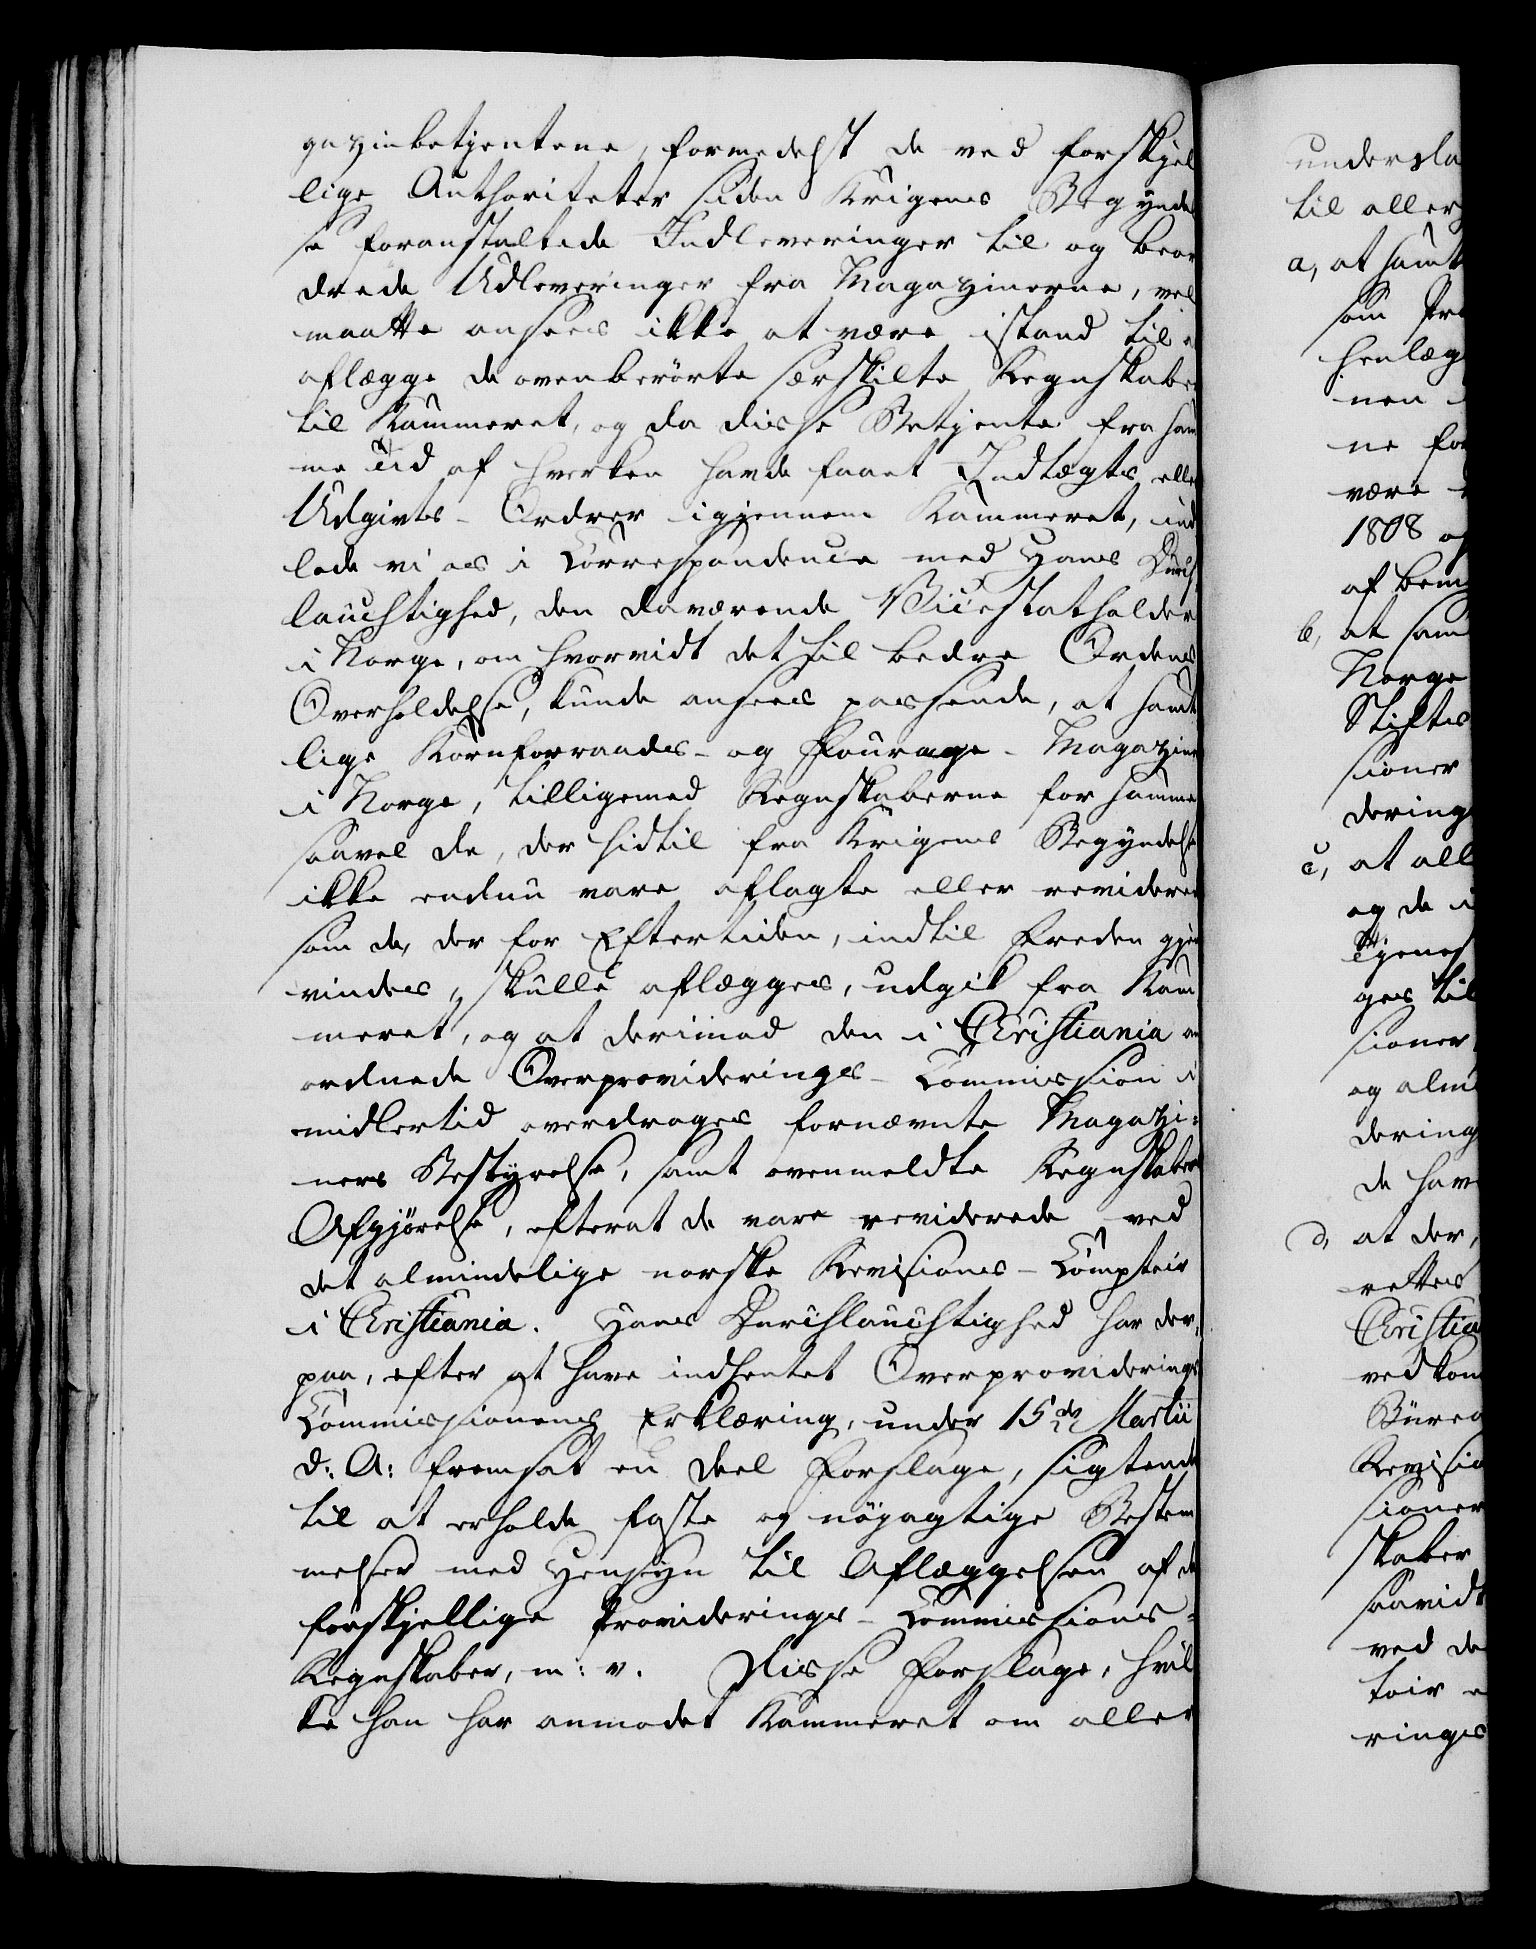 gazinbetjentene, formedelst de ved forskjel
lige Authoriteter siden Krigens Begyndel
se foranstaltede Indleveringer til og beor
drede Udleveringer fra Magazinerne, vel
maatte ansees ikke at være istand til a
aflægge de ovenberörte særskilte Regnskaber
til Kammeret, og da disse Betjente fra sam
me Tid af hverken havde faaet Indtægts eller
Udgivts-Ordrer igjennem Kammeret, ind
lode vi os i Correspondence med Hans Durch
lauchtighed, den daværende Vicestatholder
i Norge, om hvorvidt det til bedre Ordens
Overholdelse, kunde ansees passende, at samt
lige Kornforraads- og Fourage-Magaziner
i Norge, tilligemed Regnskaberne for samme
saavel de, der hidtil fra Krigens Begyndelse
ikke endnu vare aflagte eller reviderede
som de, der for Eftertiden, indtil Freden gjen
vindes, skulle aflægges, udgik fra Kam
meret, og at derimod den i Christiania an
ordnede Overproviderings-Commission i
midlertid overdrages fornævnte Magazi=
ners Bestyrelse, samt ovenmeldte Regnskabers
Afgjörelse, efterat de vare reviderede ved
det almindelige norske Revisions-Comptoir
i Christiania. Hans Durchlauchtighed har der,
paa, efter at have indhentet Overproviderings
Commissionens Erklæring, under 15de Martii
d: A: fremsat en Deel Forslage, sigtende
til at erholde faste og nöjagtige Bestem
melser med Hensyn til Aflæggelsen af de
forskjellige Providerings-Commissions=
Regnskaber, m: v. Disse Forslage, hvil
ke han har anmodet Kammeret om aller
undersda
til aller
a, at samt
som Pro
henlæg
nen
ne for
være
1808 og
af bem
b, at sam
Norge
Stifts
sioner
dering
c, at all
og de i
tjenes
ges til
sioner
og alm
dering
de hav
d, at der,
rettes
Christia
vedkom
Bürea
Revisio
sioner
skaber
saavidt
ved de
toir e
rings